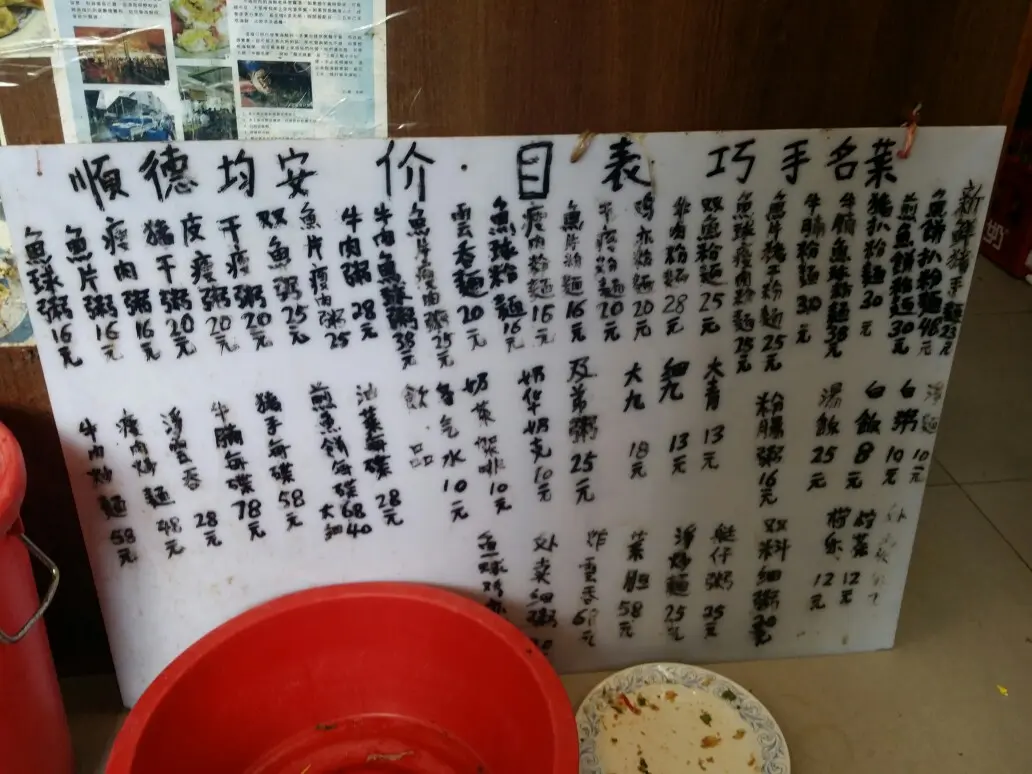 順德均安 价·目表 巧手名菜
魚球粥16元
魚片粥16元
瘦肉粥16元
猪干粥20元
皮瘦粥20元
干瘦粥20元
双魚粥25元
魚片瘦肉粥25
牛肉粥28元
牛肉魚球粥38元
魚片瘦肉粥25元
雲吞麵20元
魚球粉麵16元
瘦肉粉麵16元
魚片粉麵16元
20元
20元
牛肉粉麵28元
双魚粉麵25元
魚球瘦肉粉麵25元
魚片猪干粉麵25元
牛腩粉麵30元
牛腩魚球粉麵38元
猪扒粉麵30元
煎魚餅粉麵30元
魚餅扒粉麵46元
新鮮猪手麵25元
牛肉炒麵58元
瘦肉炒麵48元
淨雲吞28元
牛腩每碟78元
猪手每碟58元
煎魚餅每碟大68細40
油菜每碟28元
飲品
各气水10元
奶茶架啡10元
奶华奶克10元
及第粥25元
大九18元
細九13元
大青13元
粉腸粥16元
湯飯25元
白飯8元
白粥10元
淨麵10元
魚球
外卖細粥
炸雲吞
菜胆58元
淨炒麵25元
艇仔粥25元
双料細粥20元
柠乐12元
柠茶12元
外